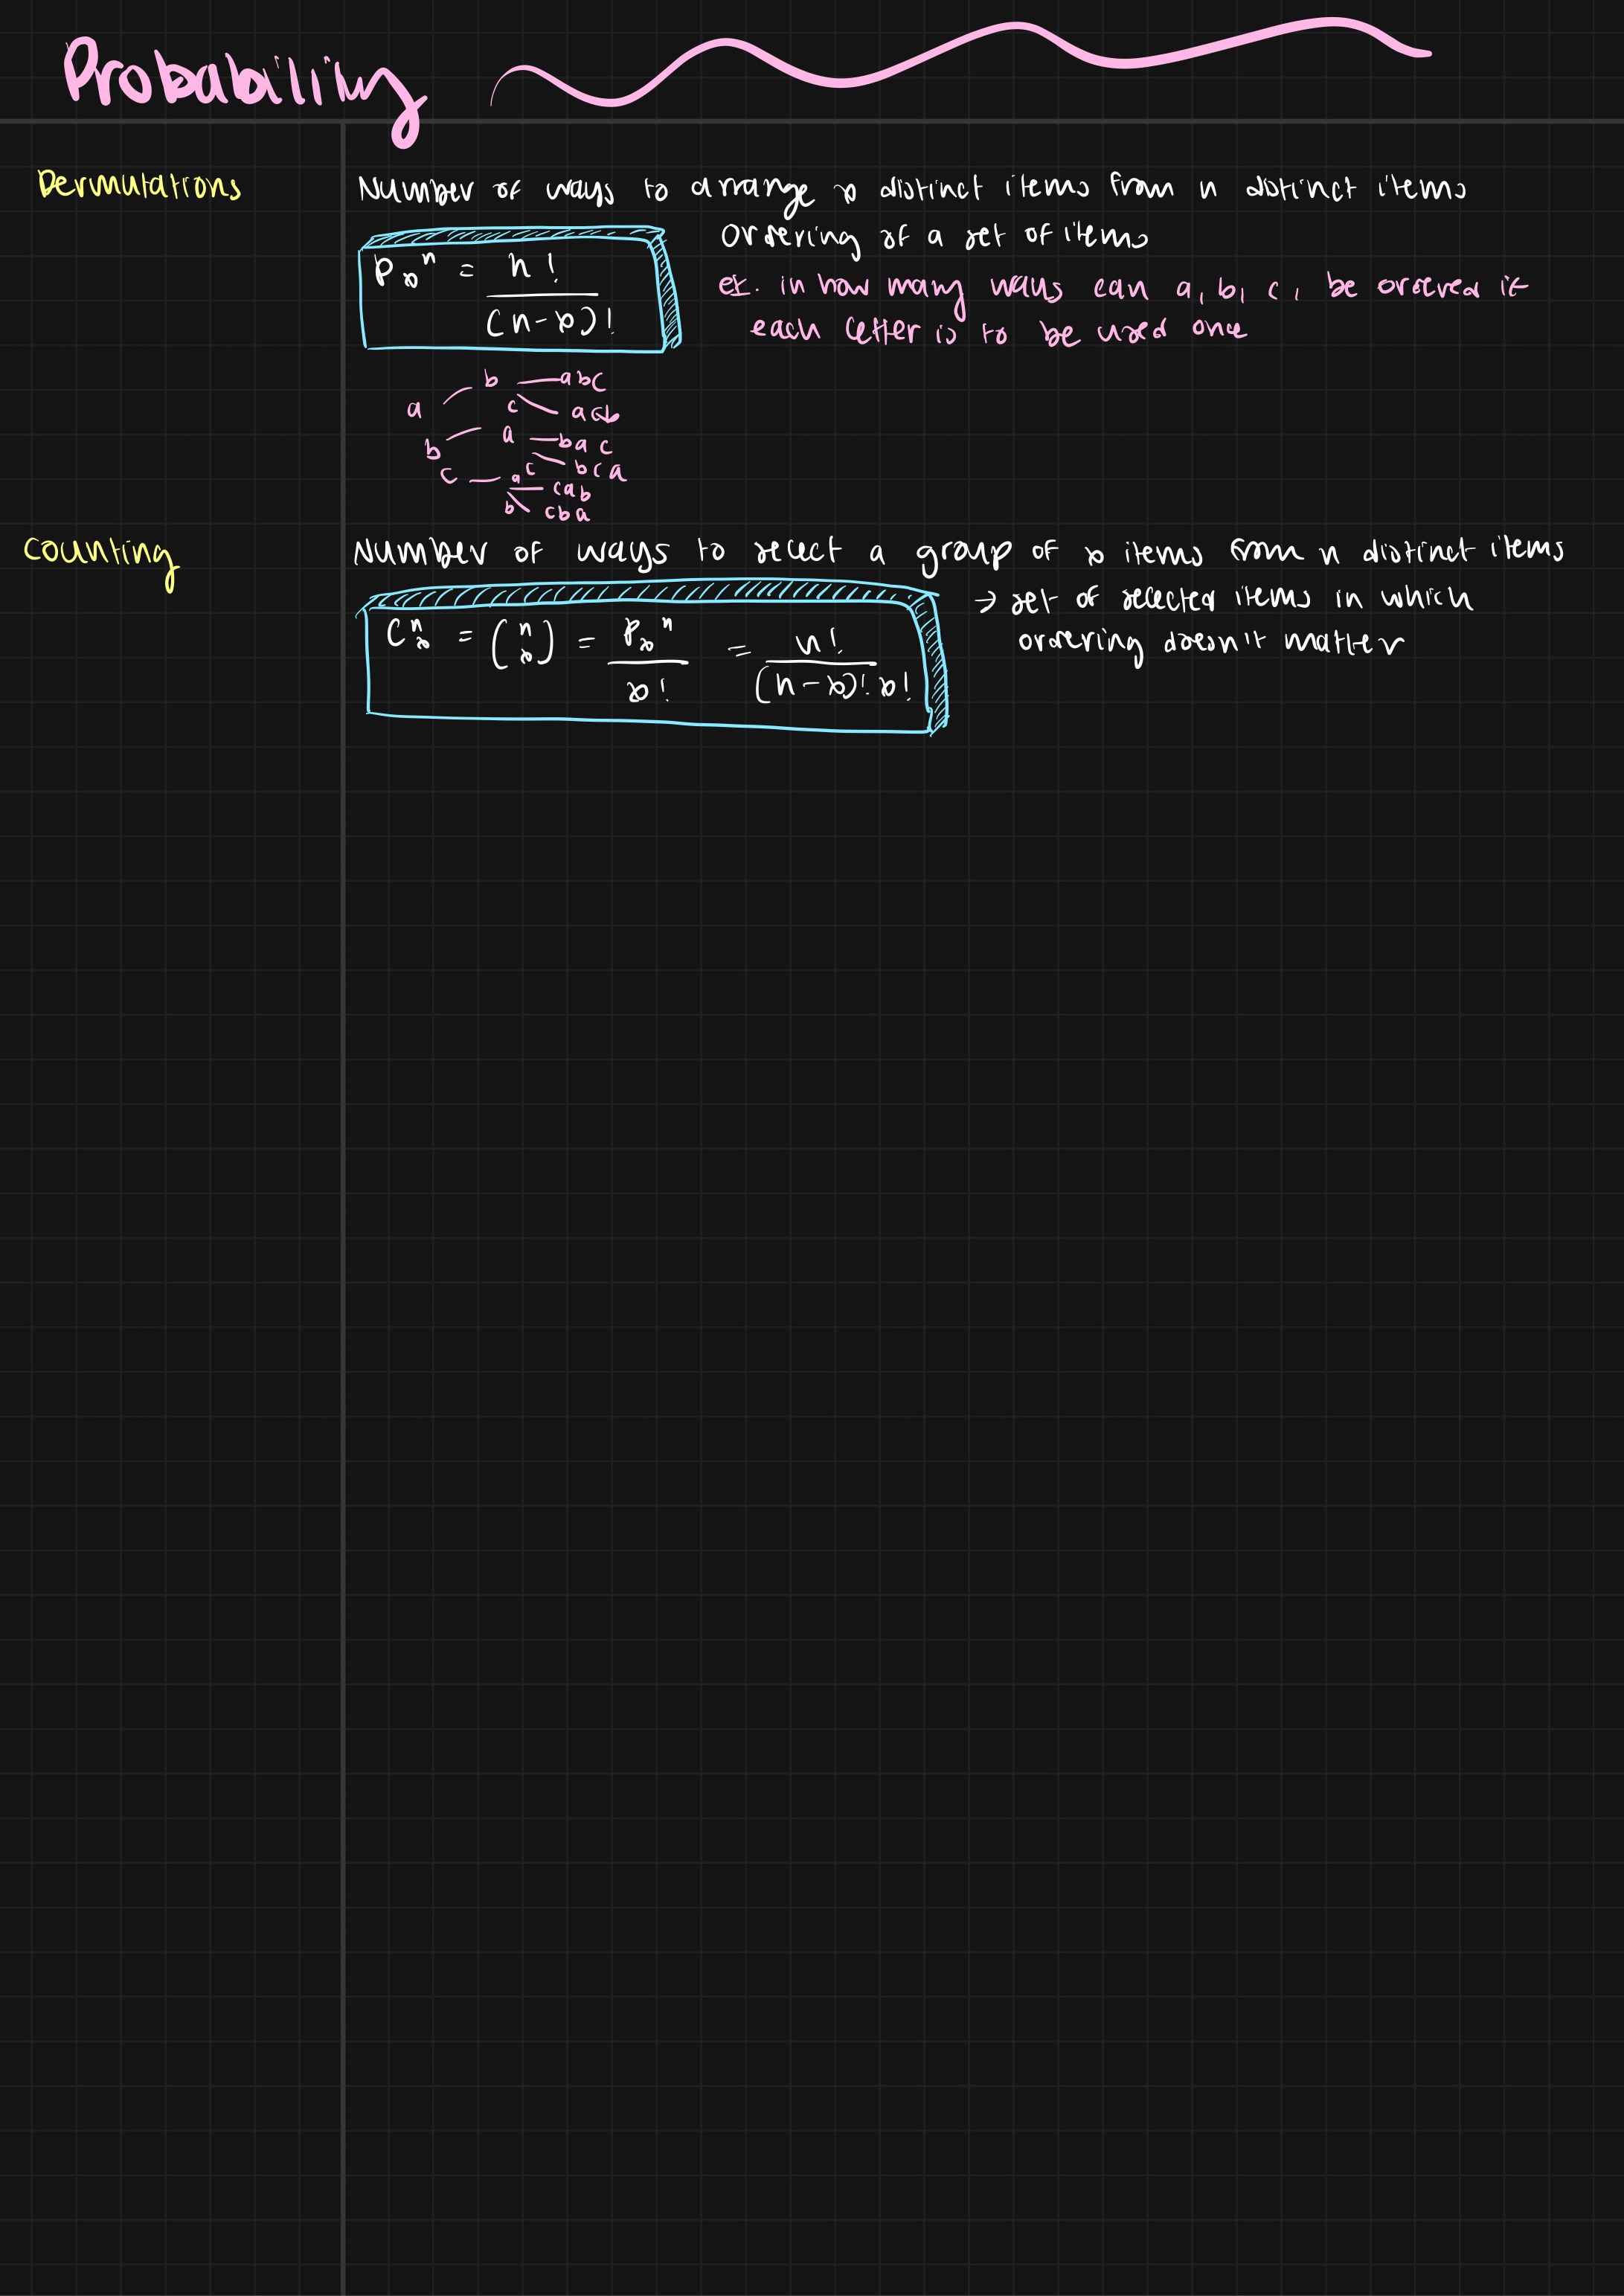 Probability
Permutations
Number of ways to arrange x distinct items from n distinct items
Ordering of a set of items
P x n = n!
(n-x)!
ex. in how many ways can a, b, c, be ordered if
each letter is to be used once
b abc
a c acb
b a bac
c bca
c a cab
b cba
Counting
Number of ways to select a group of x items from n distinct items
→ set of selected items in which
ordering doesn't matter
C n x = (n x) = P x n / x! = n! / (n-x)! x!